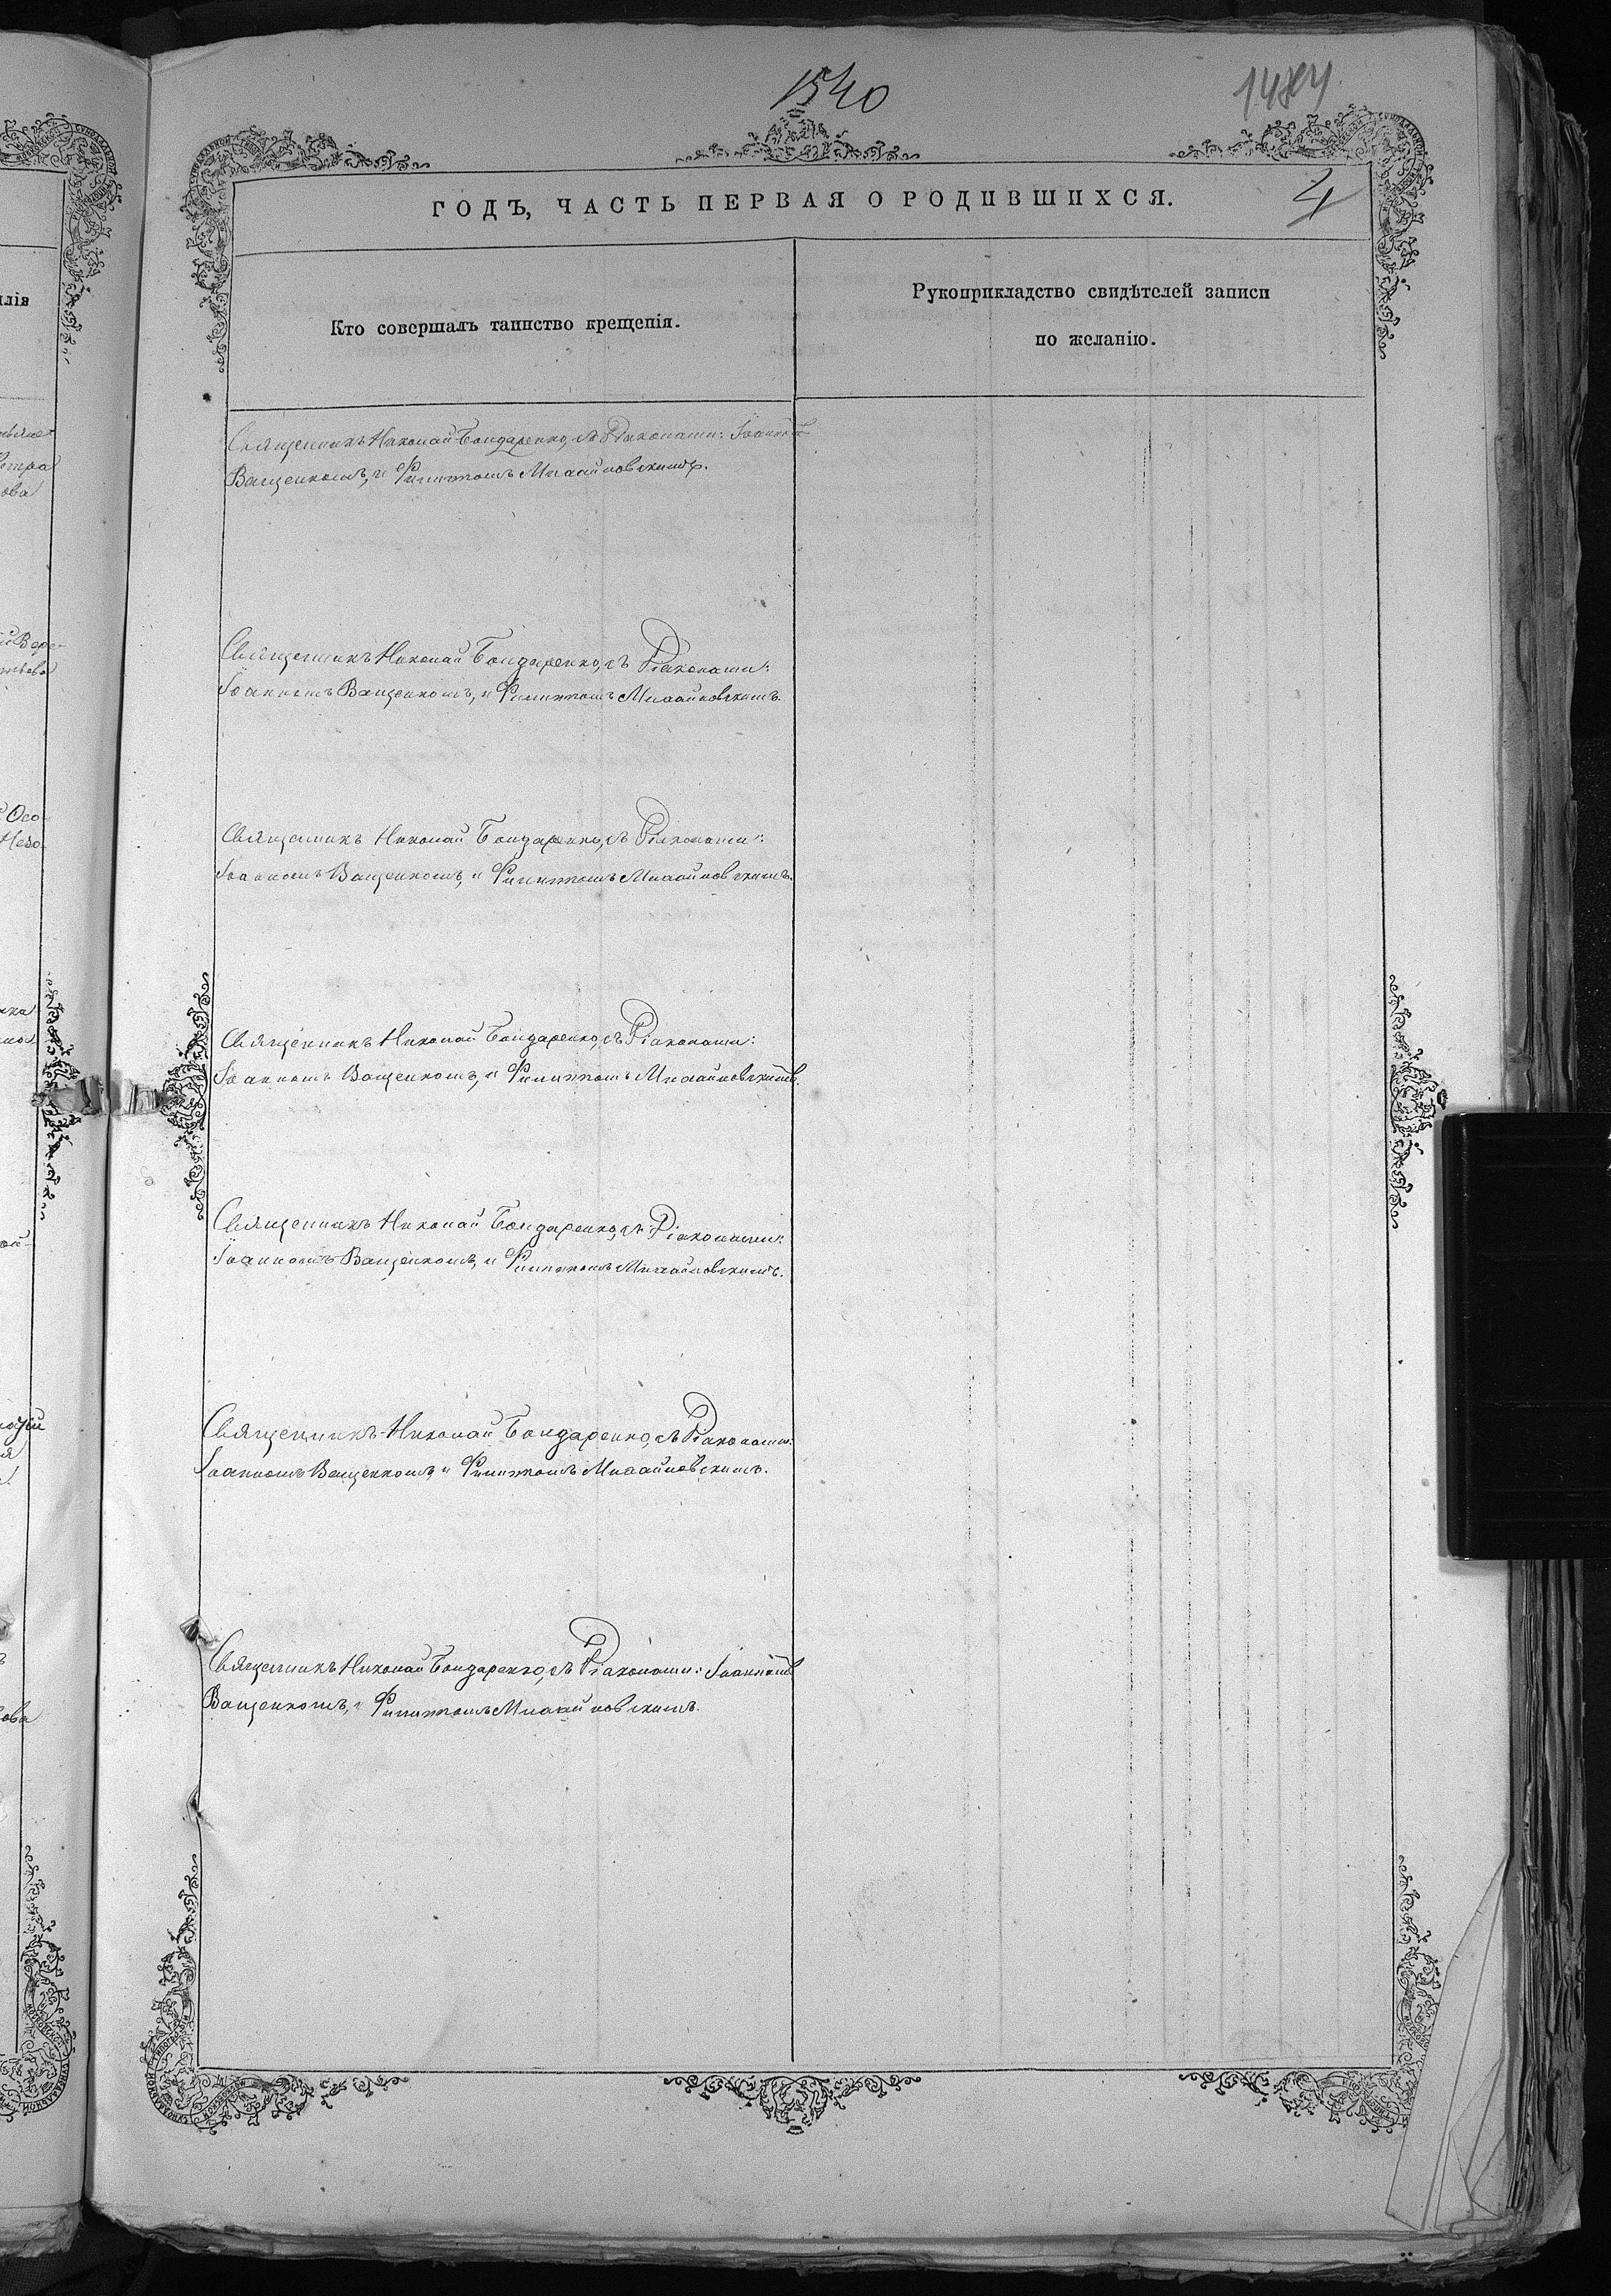 1540
4
ГОДЪ, ЧАСТЬ ПЕРВАЯ О РОДИВШИХСЯ.
Кто совершалъ таинство крещенія.
Рукоприкладство свидѣтелей записи
по желанію.
Священникъ Николай Бондаренко, съ Діаконами: Іоанномъ
Ващенкомъ, и Филиппомъ
Священникъ Николай Бондаренко, съ Діаконами:
Іоанномъ Ващенкомъ, и Филиппомъ
Священникъ Николай Бондаренко, съ Діаконами:
Іоанномъ Ващенкомъ, и Филиппомъ
Священникъ Николай Бондаренко, съ Діаконами:
Іоанномъ Ващенкомъ, и Филиппомъ
Священникъ Николай Бондаренко, съ Діаконами:
Іоанномъ Ващенкомъ, и Филиппомъ
Священникъ Николай Бондаренко, съ Діаконами:
Іоанномъ Ващенкомъ, и Филиппомъ
Священникъ Николай Бондаренко, съ Діаконами: Іоанномъ
Ващенкомъ, и Филиппомъ